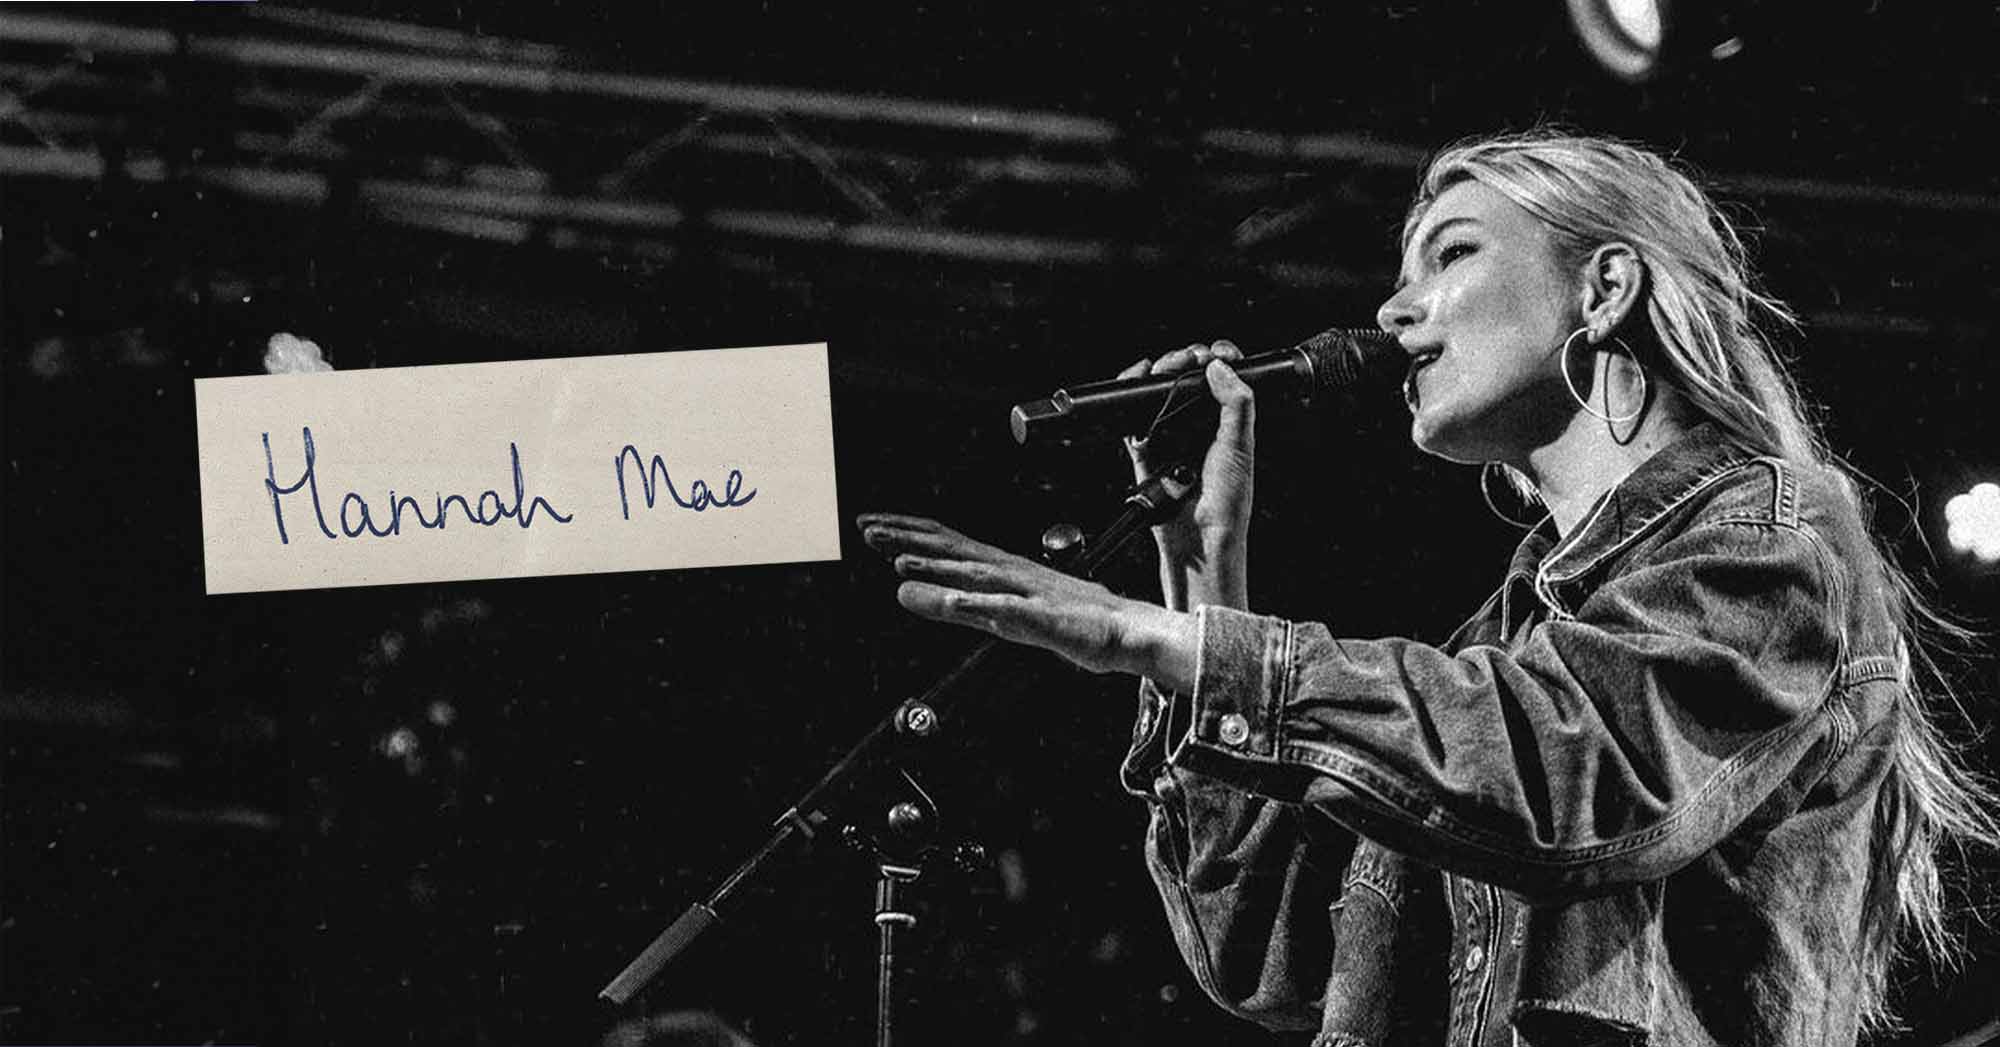 Hannah Mae